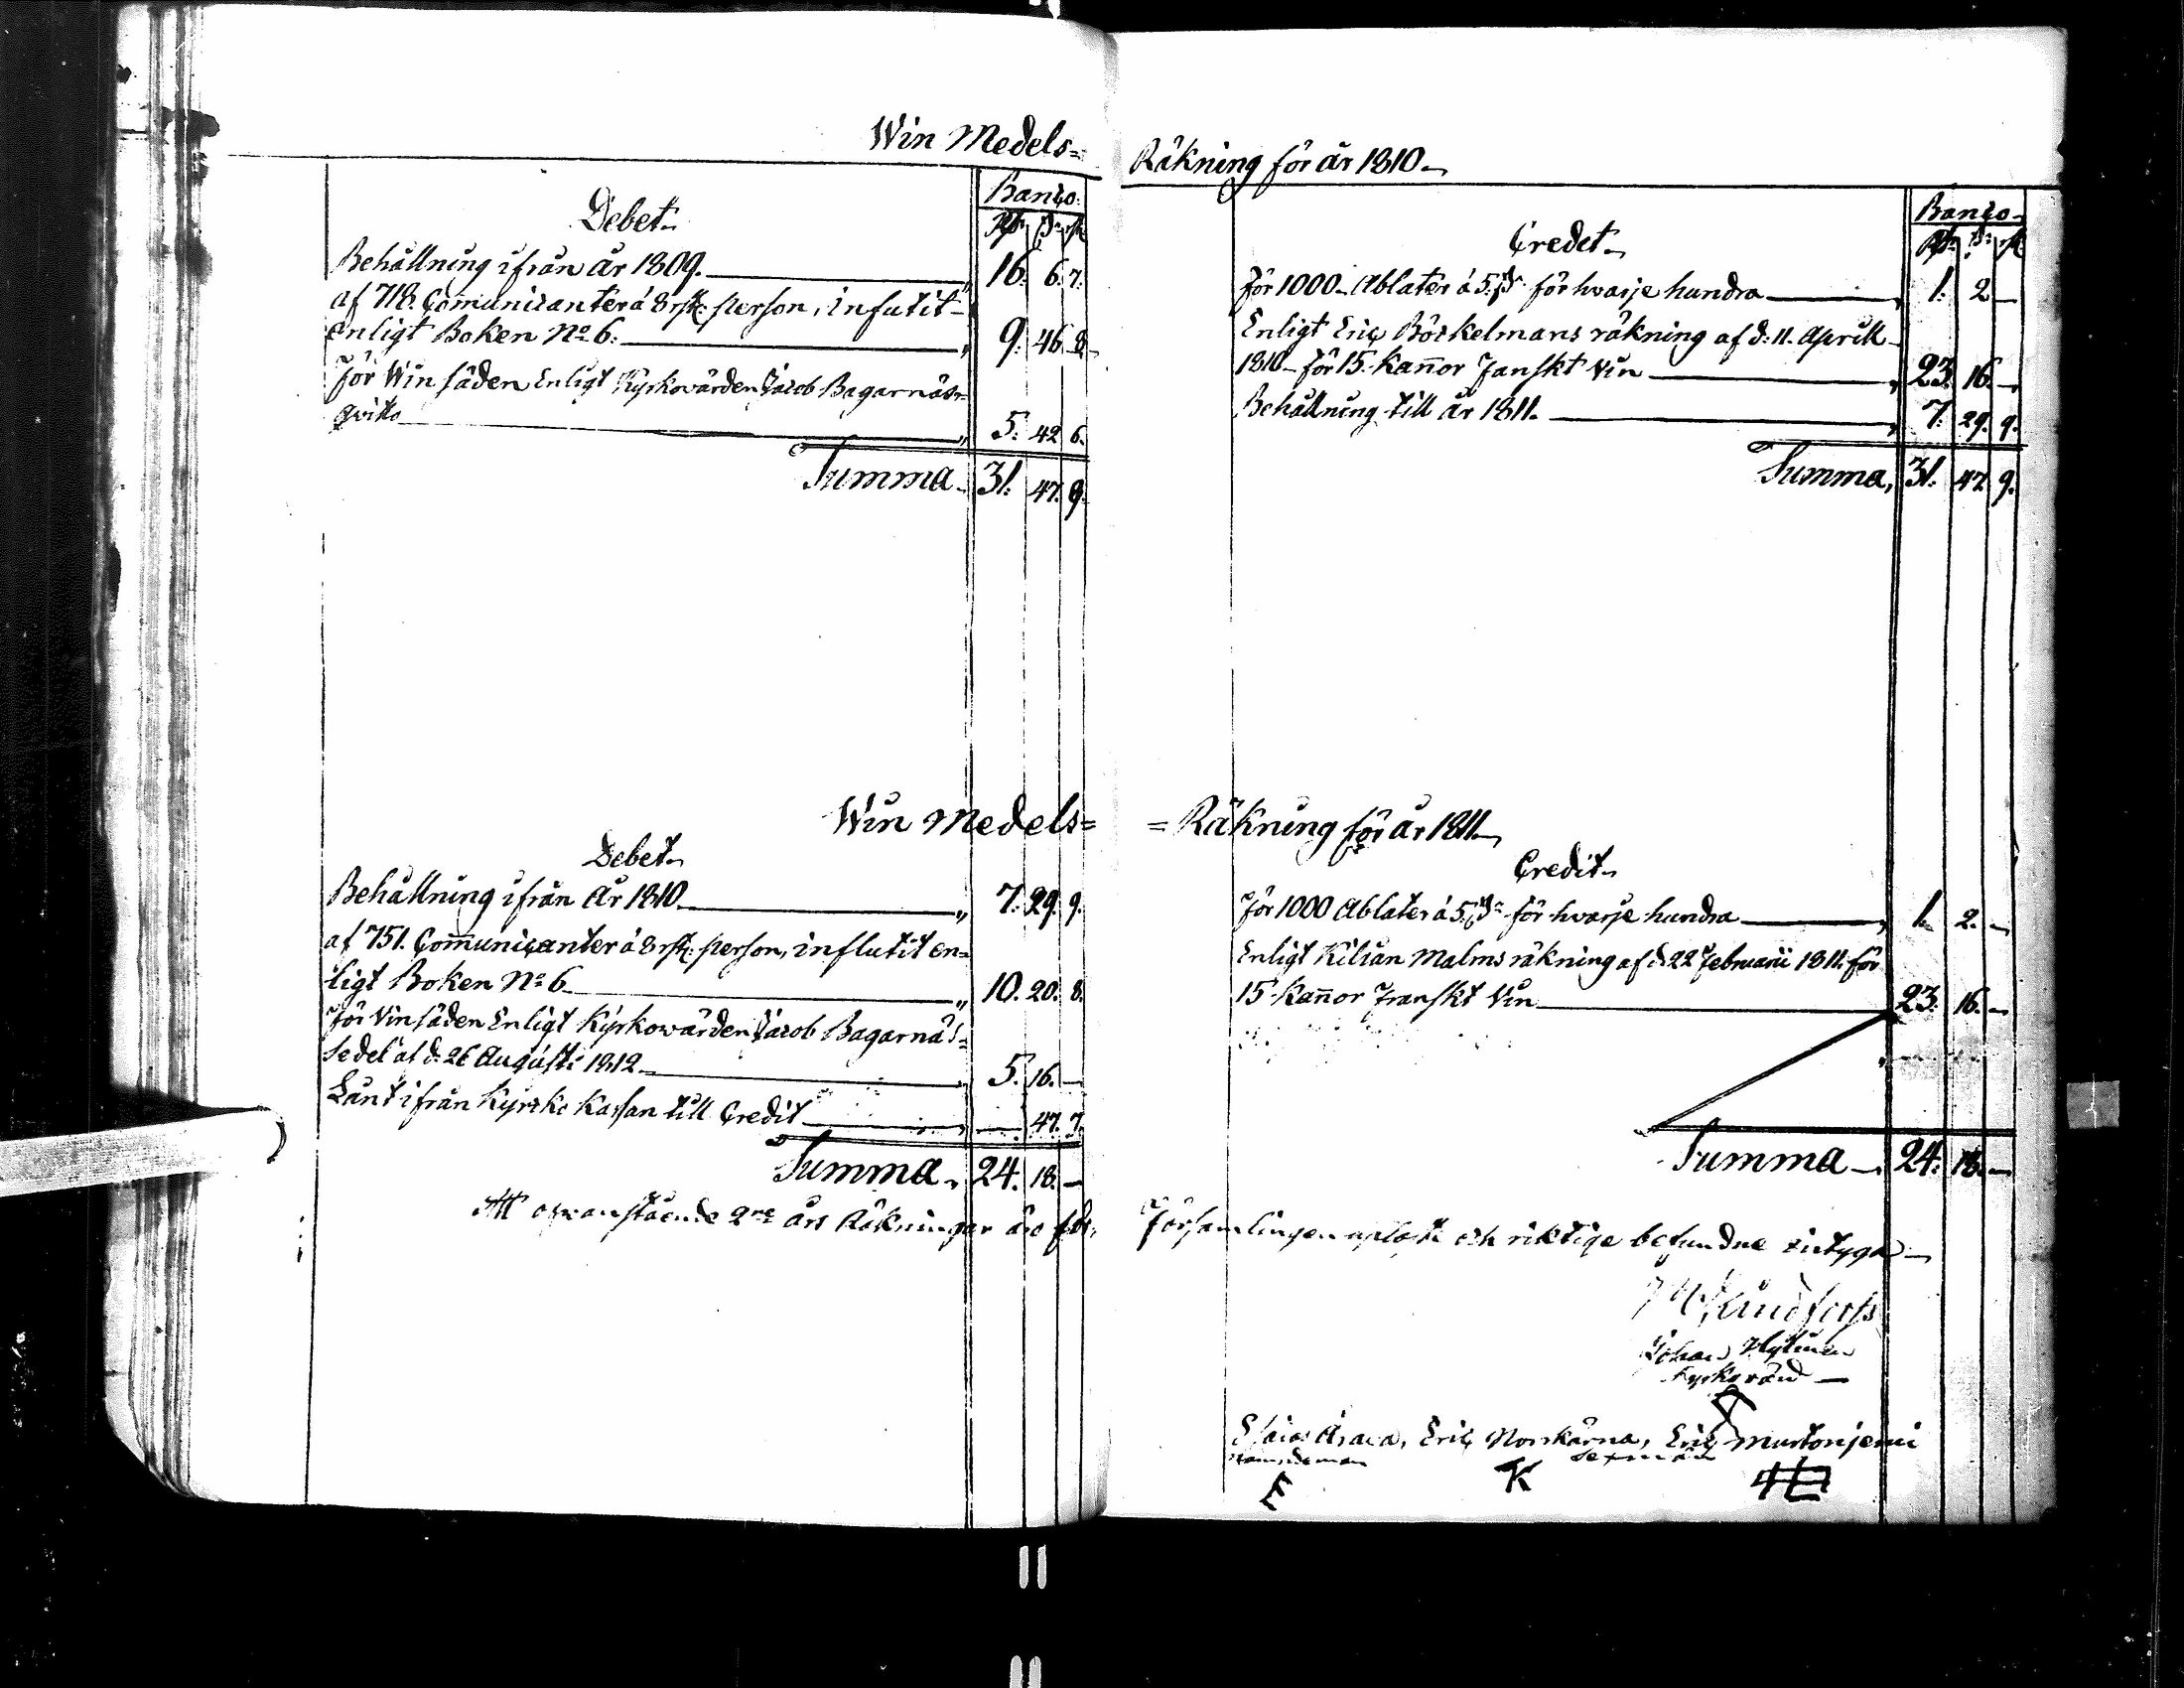 Win Medels=
Debet
Banco.
Rd. s. rst.
Behållning ifrån år 1809. 16. 6. 7.
af 718. Com̄unicanter á 8 rst. person, infutit
enligt Boken No 6. 9. 46. 8.
För Win säden Enligt Kyrkowärden Jacob Bagarnäs
qvitto 5. 42. 6.
Summa 31. 47. 9.
Win Medels=
Debet
Behållning ifrån År 1810 7. 29. 9.
af 751. Com̄unicanter á 8 rst. person, influtit en=
ligt Boken No 6 10. 20. 8.
För Vin säden Enligt Kyrkowärden Jacob Bagarnäs=
sedel af d. 26 Augusti 1812 5. 16. —
Lånt ifrån Kyrko Kassan till Credit — 47. 7.
Summa 24. 18. —
Att ofvanstående 2ne års Räkningar äro för
Räkning för år 1810
Credet
Banco
Rd. s. rst.
För 1000 Ablater á 5. s. för hvarje hundra 1. 2. —
Enligt Eric Börkelmans räkning af d. 11. Aprill
1810 för 15. Kan̄or Franskt Vin 23. 16. —
Behållning till år 1811. 7. 29. 9.
Summa, 31. 47. 9.
=Räkning för år 1811
Credit
För 1000 Ablater á 5. s. för hvarje hundra 1. 2. —
Enligt Kilian Malms räkning af d. 22 Februarii 1811. för
15 Kan̄or Franskt Vin 23. 16. —
Summa 24. 18. —
Församlingen upläste och riktige befundne intygar
Johan
Kyrkovärd
Esaias Eric Eric Murtonjemi
Sexmän
E K